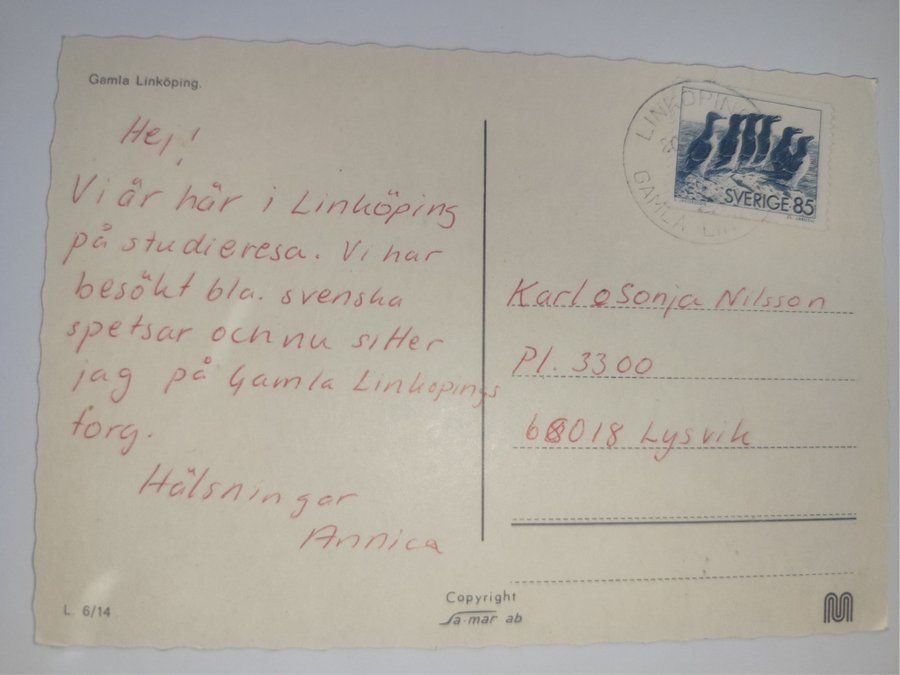 Gamla Linköping.
Hej!
Vi är här i Linköping
på studieresa. Vi har
besökt bla. svenska
spetsar och nu sitter
jag på Gamla Linköpings
torg.
Hälsningar
Annica
L. 6/14
Copyright
Sa-mär ab
LINKÖPING
GAMLA
SVERIGE 85
Karl o Sonja Nilsson
Pl. 3300
68018 Lysvik